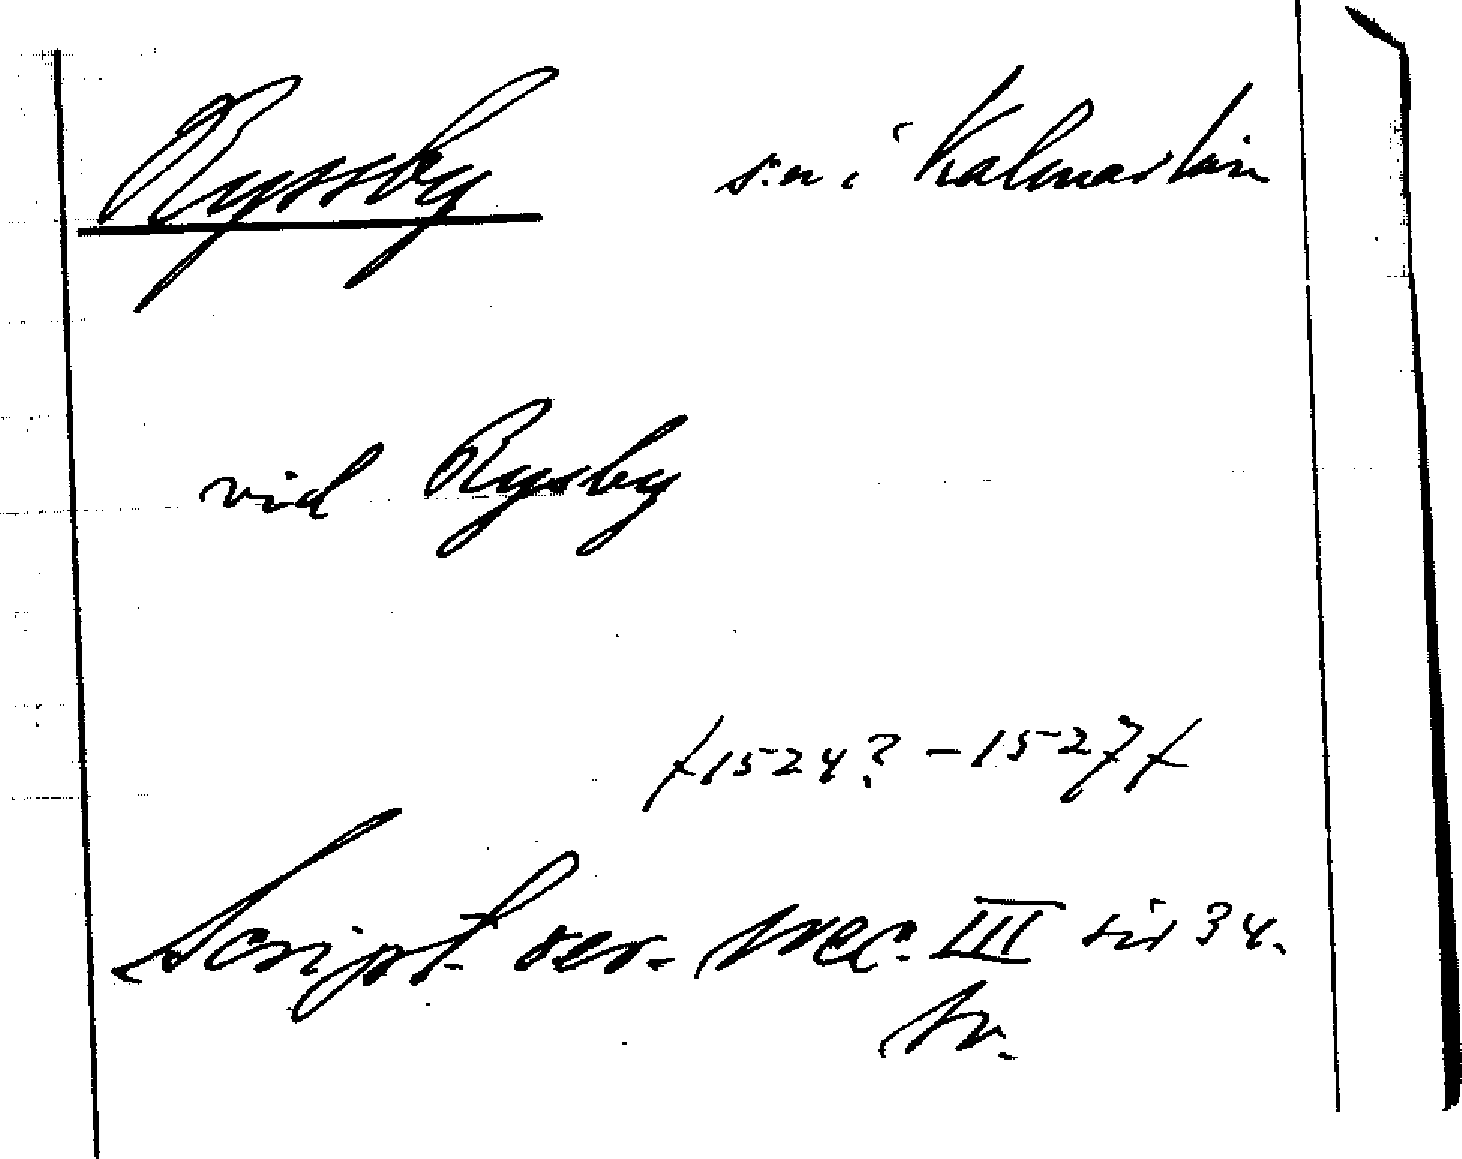 Ryssby s:n i Kalmar län
vid Rysby
/1524? - 1527/
Script. rer. svec. III sid 34.
tr.